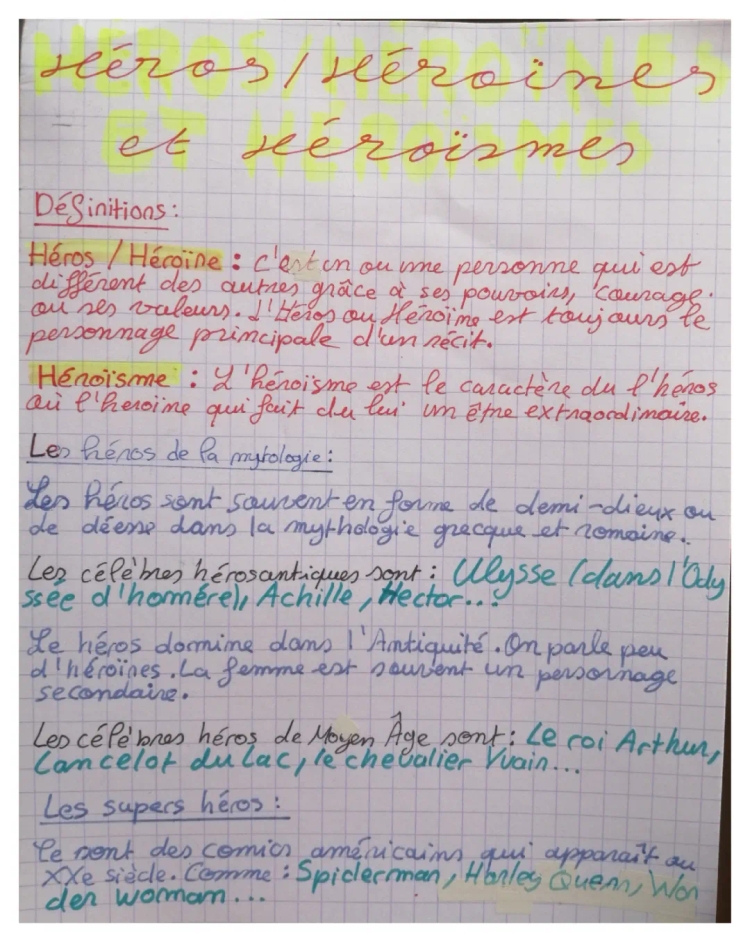 Héros / Héroïnes
et Héroïsmes
Définitions :
Héros / Héroïne : c'est un ou une personne qui est
différent des autres grâce à ses pouvoirs, courage
ou ses valeurs. L'Héros ou Héroïne est toujours le
personnage principale d'un récit.
Héroïsme : L'héroïsme est le caractère du l'héros
où l'heroïne qui fait du lui un être extraordinaire.
Les héros de la mytologie :
Les héros sont souvent en forme de demi-dieux ou
de déesse dans la mythologie grecque et romaine.
Les célèbres héros antiques sont : Ulysse (dans l'Ody
ssée d'homére), Achille, Hector...
Le héros domine dans l'Antiquité. On parle peu
d'héroïnes. La femme est souvent un personnage
secondaire.
Les célèbres héros de Moyen Âge sont : Le roi Arthur,
Lancelot du Lac, le chevalier Yvain...
Les supers héros :
Ce sont des comics américains qui apparaît au
XXe siècle. Comme : Spiderman, Harley Quenn, Won
der womam...